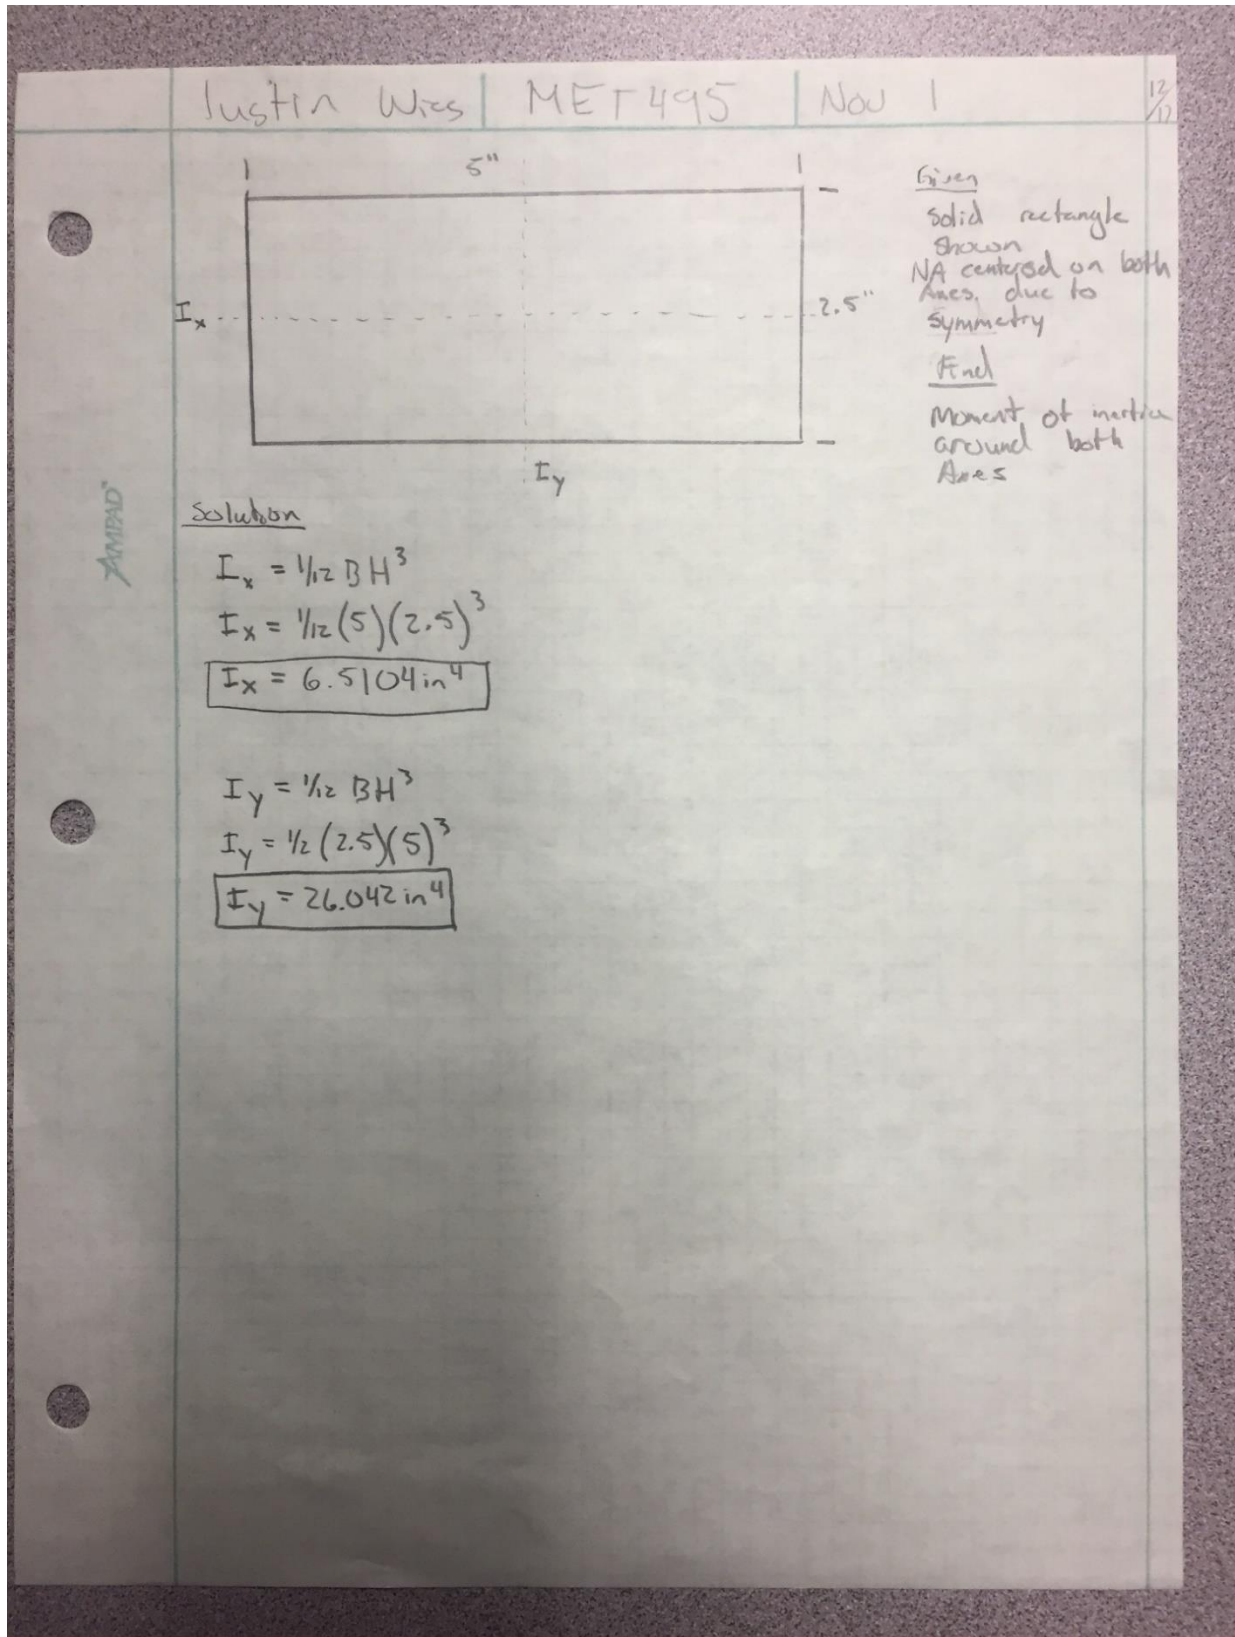 Justin MET495 Nov 1 12/12
5"
2.5"
Ix
Iy
Given
Solid rectangle
Shown
NA centered on both
Axes. due to
symmetry
Find
Moment of inertia
around both
Axes
AMPAD
Solution
Ix = 1/12 BH³
Ix = 1/12 (5)(2.5)³
Ix = 6.5104 in⁴
Iy = 1/12 BH³
Iy = 1/2 (2.5)(5)³
Iy = 26.042 in⁴